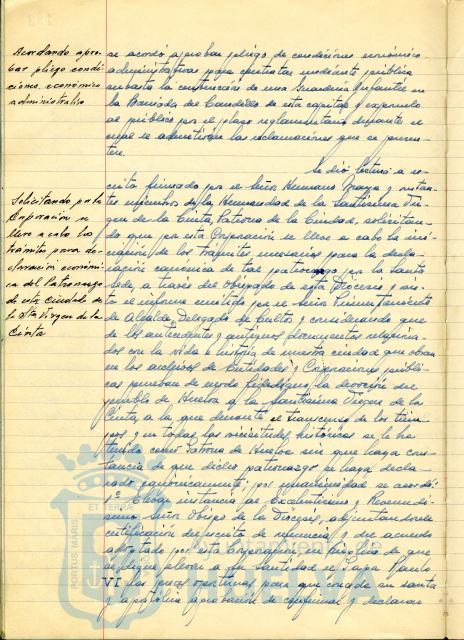 Acordando apro-
bar pliego condi
ciones económico
administrativo
se acordó aprobar pliego de condiciones económico
administrativas para contratar mediante pública
subasta la construcción de una Guardería Infantes en
la Barriada del Candelo de esta capital y exponerlo
al público por el plazo reglamentario durante el
cual se admitirán las reclamaciones que se presen-
ten.
Solicitando por la
Corporación se
lleve a cabo los
trámites para de-
claración canónica
del Patronazgo
de esta Ciudad de
la Stª Virgen de la
Cinta
Se dió lectura a es-
crito firmado por el Señor Hermano Mayor y restan-
tes miembros de la Hermandad de la Santísima Vir-
gen de la Cinta, Patrona de la Ciudad, solicitan-
do que por esta Corporación se lleve a cabo la ini-
ciación de los trámites necesarios para la decla-
ración canónica de tal patronazgo por la Santa
Sede, a través del Obispado de esta Diócesis y vis-
to el informe emitido por el Señor Primer Teniente
de Alcalde, Delegado de Cultos y considerando que
de los antecedentes y antiguos documentos relaciona-
dos con la vida e historia de nuestra ciudad que obran
en los archivos de Entidades y Corporaciones públi-
cas prueban de modo fidedigno la devoción del
pueblo de Huelva a la Santísima Virgen de la
Cinta, a la que durante el transcurso de los tiem-
pos y en todas las vicisitudes históricas se le ha
tenido como Patrona de Huelva sin que haya cons-
tancia de que dicho patronazgo se haya decla-
rado canónicamente; por unanimidad se acordó:
1º Elevar instancia al Excelentísimo y Reverendí-
simo Señor Obispo de la Diócesis, adjuntándose
certificación del escrito de referencia y del acuerdo
adoptado por esta Corporación, en súplica de que
se digne elevar a Su Santidad el Papa Paulo
VI las preces oportunas para que conceda su santa
y apostólica aprobación de confirmar y declarar
ET TERRA
PORTUS MARIS